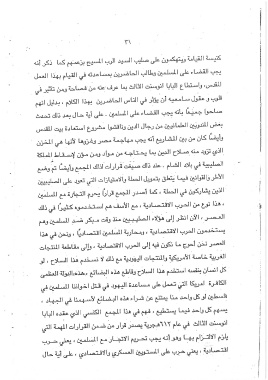 ٣١
كنيسة القيامة ويتهكمون على صليب السيد الرب المسيح بزعمهم كما ذكر أنه
يجب القضاء على المسلمين وطالب الحاضرين بمساعدته في القيام بهذا العمل
المقدس، واستطاع البابا أنوسنت الثالث بما عرف عنه من فصاحة ومن تأثير في
قلوب وعقول سامعيه أن يؤثر في الناس الحاضرين بهذا الكلام، بدليل أنهم
صاحوا جميعًا بأنه يجب القضاء على المسلمين، على أية حال بعد ذلك تحدث
بعض المندوبين العلمانيين من رجال الدين وناقشوا مشروع استعادة بيت المقدس
وأيضًا كان من بين المشاريع أنه يجب مهاجمة مصر وغزوها لأنها هي المخزن
الذي تزود منه صلاح الدين بما يحتاجه من مواد ومن مؤن لإسقاط المملكة
الصليبية في بلاد الشام، عند ذلك صيغت قرارات لذلك المجمع وأيضًا تم وضع
الأطر والقوانين فيما يتعلق بتمويل الحملة والامتيازات التي تعود على الصليبيين
الذين يشاركون في الحملة، كما أصدر المجمع قرارًا يحرم التجارة مع المسلمين
، هذا نوع من الحرب الاقتصادية، مع الأسف هم استخدموه كثيرًا في ذلك
العصر، الآن انظر إلى هؤلاء الصليبيين منذ وقت مبكر ضد المسلمين وهم
يستخدمون الحرب الاقتصادية، ومحاربة المسلمين اقتصاديًا، ونحن في هذا
العصر نحن أحوج ما نكون فيه إلى الحرب الاقتصادية، وإلى مقاطعة المنتجات
الغربية خاصة الأمريكية والمنتجات اليهودية مع ذلك لا نستخدم هذا السلاح، لو
كل إنسان بنفسه استخدم هذا السلاح وقاطع هذه البضائع، هذه الدولة العظمى
الكافرة أمريكا التي تعمل على مساعدة اليهود في قتل إخواننا المسلمين في
فلسطين لو كل واحد منا يمتنع عن شراء هذه البضائع لأسهمنا في الجهاد،
يسهم كل واحد فيما يستطيع، فهم في هذا المجمع الكنسي الذي عقده البابا
أنوسنت الثالث في عام ٦١٢هجرية يصدر قرار من ضمن القرارات المهمة التي
يلزم الالتزام بها وهو أنه يجب تحريم الاتجار مع المسلمين، يعني حرب
اقتصادية، يعني حرب على المستويين العسكري والاقتصادي، على أية حال